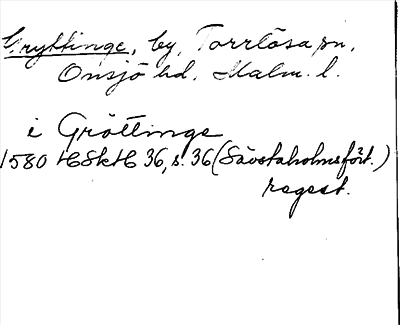 Gryttinge, by, Torrlösa sn,
Onsjö hd. Malm. l.
i Gröttinge
1580 HSkH 36, s. 36 (Sävstaholmsfört.)
regest.